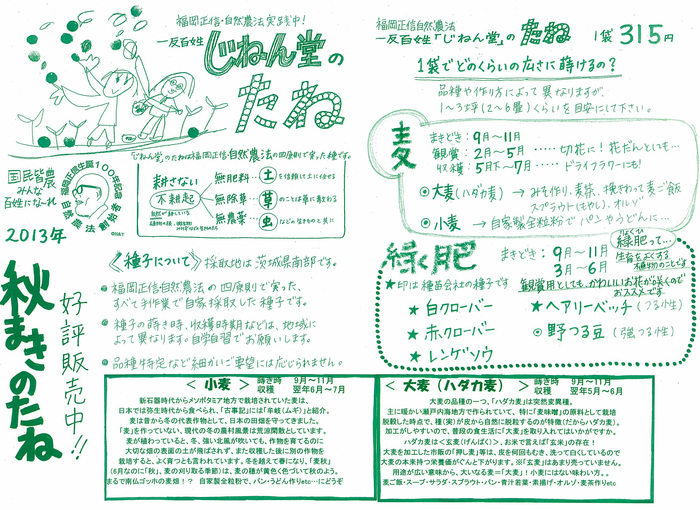 福岡正信・自然農法実践中!
一反百姓 じねん堂の
たね
国民皆農
みんな
百姓にな〜れ
福岡正信生誕100年記念
自然農法創始者
「じねん堂」のたねは福岡正信自然農法の四原則で実った種です。
耕さない
不耕起
無肥料…土を信頼して土に任せる
無除草…草のことは草に教わる
無農薬…虫などの生きものと共に
2013年
秋まきのたね
好評販売中!!
《種子について》 採取地は茨城県南部です。
福岡正信自然農法の四原則で実った、
すべて手作業で自家採取した種子です。
種子の蒔き時、収穫時期などは、地域に
よって異なります。自学自習でお願いします。
品種特定など細かいご要望には応じられません。
福岡正信自然農法
一反百姓「じねん堂」の たね 1袋315円
1袋でどのくらいの広さに蒔けるの?
品種や作り方によって異なりますが、
1〜3坪(2〜6畳)くらいを目安にして下さい。
麦
まきどき:9月〜11月
観賞:2月〜5月 ・・・・・ 切花に!花だんとも…
収穫:5月下〜7月 ・・・・・ ドライフラワーにも!
◎大麦(ハダカ麦) → みそ作り、麦茶、挽きわって麦ご飯
スプラウト(もやし)、オルゾ
◎小麦 → 自家製全粒粉でパンやうどんに…
緑肥
まきどき:9月〜11月
3月〜6月
りょくひ
緑肥って…
生命を手くする
植物のことです
★印は種苗会社の種子です
観賞用としても、かわいいお花が咲くので
おススメです
★白クローバー
★赤クローバー
★レンゲソウ
★ヘアリーベッチ(つる性)
◎野つる豆(強つる性)
<小麦> 蒔き時 9月〜11月
収穫 翌年6月〜7月
新石器時代からメソポタミア地方で栽培されていた麦は、
日本では弥生時代から食べられ、「古事記」には「牟岐(ムギ)」と紹介。
麦は昔から冬の代表作物として、日本の田畑を守ってきました。
「麦」を作っていない、現代の冬の農村風景は荒涼閑散としています。
麦が植わっていると、冬、強い北風が吹いても、作物を育てるのに
大切な畑の表面の土が飛ばされず、また収穫した後に別の作物を
栽培すると、よく育つとも言われています。冬を越えて春になり、「麦秋」
(6月なのに「秋」、麦の刈り取る季節)は、麦の穂が黄色く色づいて秋のよう。
まるで南仏ゴッホの麦畑!? 自家製全粒粉で、パン・うどん作りetc…にどうぞ
<大麦(ハダカ麦)> 蒔き時 9月〜11月
収穫 翌年5月〜6月
大麦の品種の一つ、「ハダカ麦」は突然変異種。
主に暖かい瀬戸内海地方で作られていて、特に「麦味噌」の原料として栽培
脱穀した時点で、種(実)が皮から自然に脱粒するのが特徴(だからハダカ麦)。
加工がしやすいので、普段の食生活に「大麦」を取り入れてはいかがですか。
ハダカ麦は<玄麦(げんばく)>、お米で言えば「玄米」の存在!
大麦を加工した市販の「押し麦」等は、皮を何回もむき、洗って白くしているので
大麦の本来持つ栄養価がぐんと下がります。※「玄麦」はあまり売っていません。
用途が広い意味から、大いなる麦=「大麦」!小麦にはない味わい方。。
麦ご飯・スープ・サラダ・スプラウト・パン・青汁若葉・素揚げ・オルゾ・麦茶作りetc